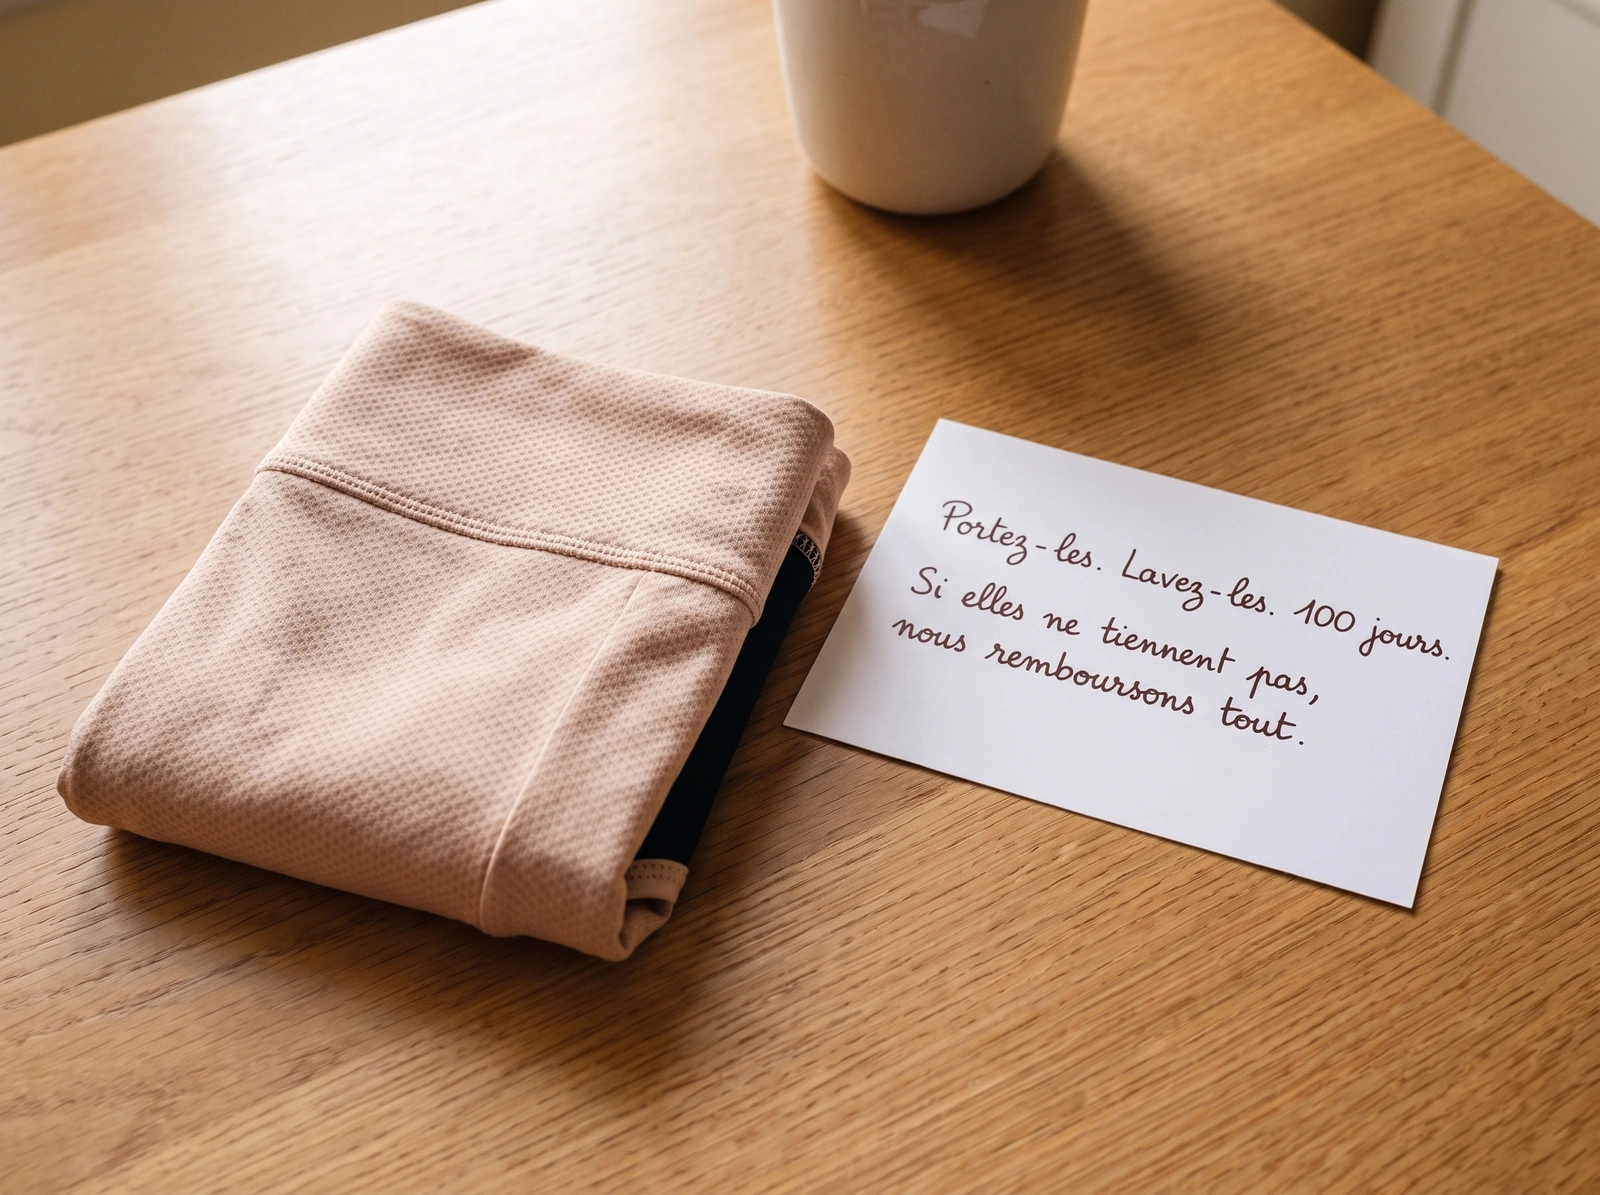 Portez-les. Lavez-les. 100 jours.
Si elles ne tiennent pas,
nous remboursons tout.